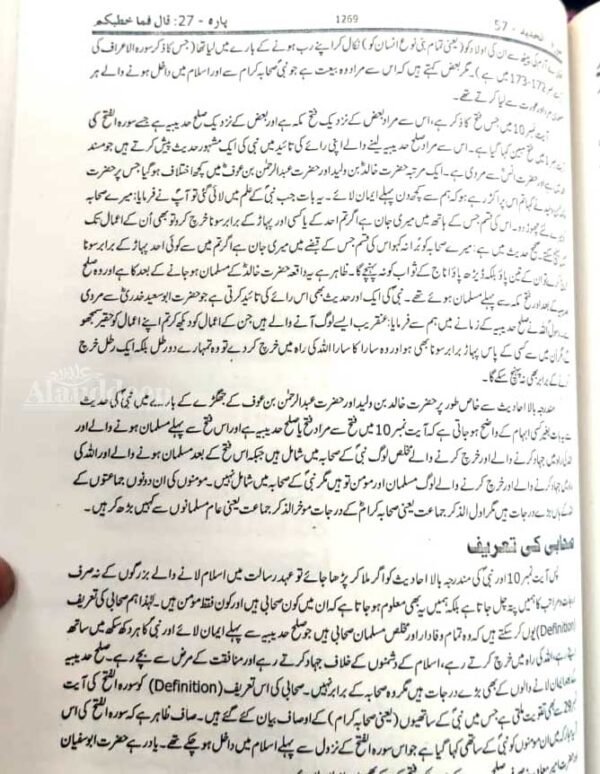 پارہ - 27: قال فما خطبکم
1269
الحدید - 57
آدم کی پیٹھ سے ان کی اولاد کو (یعنی تمام بنی نوع انسان کو) نکال کر اپنے رب ہونے کے بارے میں لیا تھا (جس کا ذکر سورہ الاعراف کی
نمبر 172-173 میں ہے)۔ مگر بعض کہتے ہیں کہ اس سے مراد وہ بیعت ہے جو نبیؐ صحابہ کرام سے اور اسلام میں داخل ہونے والے ہر
اور عورت سے لیا کرتے تھے۔
آیت نمبر 10 میں جس فتح کا ذکر ہے، اس سے مراد بعض کے نزدیک فتح مکہ ہے اور بعض کے نزدیک صلح حدیبیہ ہے جسے سورہ الفتح کی
میں فتح مبین کہا گیا ہے۔ اس سے مراد صلح حدیبیہ لینے والے اپنی رائے کی تائید میں نبی کی ایک مشہور حدیث پیش کرتے ہیں جو مسند
اور حضرت انسؓ سے مروی ہے۔ ایک مرتبہ حضرت خالدؓ بن ولید اور حضرت عبدالرحمٰن بن عوفؓ میں کچھ اختلاف ہو گیا جس پر حضرت
نے کہا تم اس پر اکڑ رہے ہو کہ ہم سے کچھ دن پہلے ایمان لائے۔ یہ بات جب نبیؐ کے علم میں لائی گئی تو آپؐ نے فرمایا: میرے صحابہ
چھوڑ دو۔ اس کی قسم جس کے ہاتھ میں میری جان ہے اگر تم احد کے یا کسی اور پہاڑ کے برابر سونا خرچ کر دو تو بھی اُن کے اعمال تک
صحیح حدیث میں ہے: میرے صحابہ کو بُرا نہ کہو اس کی قسم جس کے قبضے میں میری جان ہے اگر تم میں سے کوئی احد پہاڑ کے برابر سونا
تو ان کے تین پاؤ بلکہ ڈیڑھ پاؤ اناج کے ثواب کو نہ پہنچے گا۔ ظاہر ہے یہ واقعہ حضرت خالدؓ کے مسلمان ہو جانے کے بعد کا ہے اور وہ صلح
کے بعد اور فتح مکہ سے پہلے مسلمان ہوئے تھے۔ نبیؐ کی ایک اور حدیث بھی اس رائے کی تائید کرتی ہے جو حضرت ابو سعید خدریؓ سے مروی
رسول اللہ نے صلح حدیبیہ کے زمانے میں ہم سے فرمایا: عنقریب ایسے لوگ آنے والے ہیں جن کے اعمال کو دیکھ کر تم اپنے اعمال کو حقیر سمجھو
ان میں سے کسی کے پاس پہاڑ برابر سونا بھی ہو اور وہ سارا کا سارا اللہ کی راہ میں خرچ کر دے تو وہ تمہارے دو رطل بلکہ ایک رطل خرچ
کے برابر بھی نہ پہنچ سکے گا۔
Alauddeen
مندرجہ بالا احادیث سے خاص طور پر حضرت خالد بن ولید اور حضرت عبدالرحمٰن بن عوف کے جھگڑے کے بارے میں نبیؐ کی حدیث
بغیر کسی ابہام کے واضح ہو جاتی ہے کہ آیت نمبر 10 میں فتح سے مراد فتح یا صلح حدیبیہ ہے اور اس فتح سے پہلے مسلمان ہونے والے اور
راہ میں جہاد کرنے والے اور خرچ کرنے والے مخلص لوگ نبیؐ کے صحابہ میں شامل ہیں جبکہ اس فتح کے بعد مسلمان ہونے والے اور اللہ کی
کرنے والے اور خرچ کرنے والے لوگ مسلمان اور مومن تو ہیں مگر نبیؐ کے صحابہ میں شامل نہیں۔ مومنوں کی ان دونوں جماعتوں کے
ہاں بڑے درجات ہیں مگر اول الذکر جماعت یعنی صحابہ کرامؓ کے درجات موخر الذکر جماعت یعنی عام مسلمانوں سے کہیں بڑھ کر ہیں۔
صحابی کی تعریف
پس آیت نمبر 10 اور نبیؐ کی مندرجہ بالا احادیث کو اگر ملا کر پڑھا جائے تو عہد رسالت میں اسلام لانے والے بزرگوں کے نہ صرف
مراتب کا ہمیں پتہ چل جاتا ہے بلکہ ہمیں یہ بھی معلوم ہو جاتا ہے کہ ان میں کون صحابی ہیں اور کون فقط مومن ہیں۔ لہٰذا ہم صحابی کی تعریف
(Definition) یوں کر سکتے ہیں کہ وہ تمام وفادار اور مخلص مسلمان صحابی ہیں جو صلح حدیبیہ سے پہلے ایمان لائے اور نبیؐ کا ہر دکھ سکھ میں ساتھ
رہے، اللہ کی راہ میں خرچ کرتے رہے، اسلام کے دشمنوں کے خلاف جہاد کرتے رہے اور منافقت کے مرض سے بچے رہے۔ صلح حدیبیہ
ایمان لانے والوں کے بھی بڑے درجات ہیں مگر وہ صحابہ کے برابر نہیں۔ صحابی کی اس تعریف (Definition) کو سورہ الفتح کی آیت
نمبر 29 سے بھی تقویت ملتی ہے جس میں نبیؐ کے ساتھیوں (یعنی صحابہ کرام) کے اوصاف بیان کئے گئے ہیں۔ صاف ظاہر ہے کہ سورہ الفتح کی اس
میں ان مومنوں کو نبیؐ کے ساتھی کہا گیا ہے جو اس سورہ الفتح کے نزول سے پہلے اسلام میں داخل ہو چکے تھے۔ یاد رہے حضرت ابو سفیان